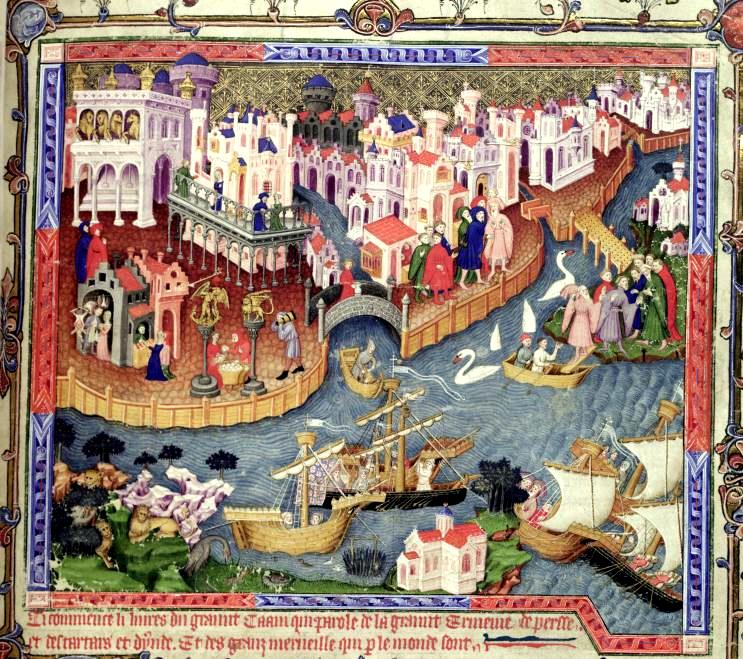 Ci commence li liures du graunt Caam qui parole de la graunt Ermenie de persse.
et des tartars et dynde. Et des granz merueille qui p le monde sont.